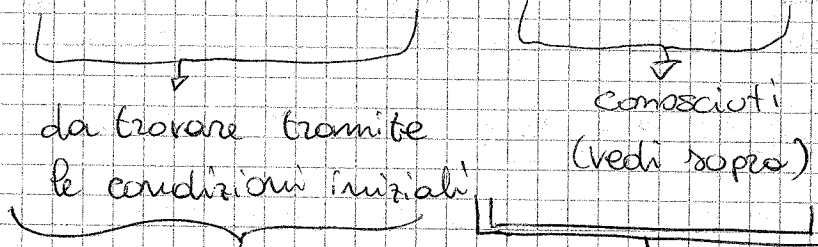 da trovare tramite
le condizioni iniziali
conosciuti
(vedi sopra)